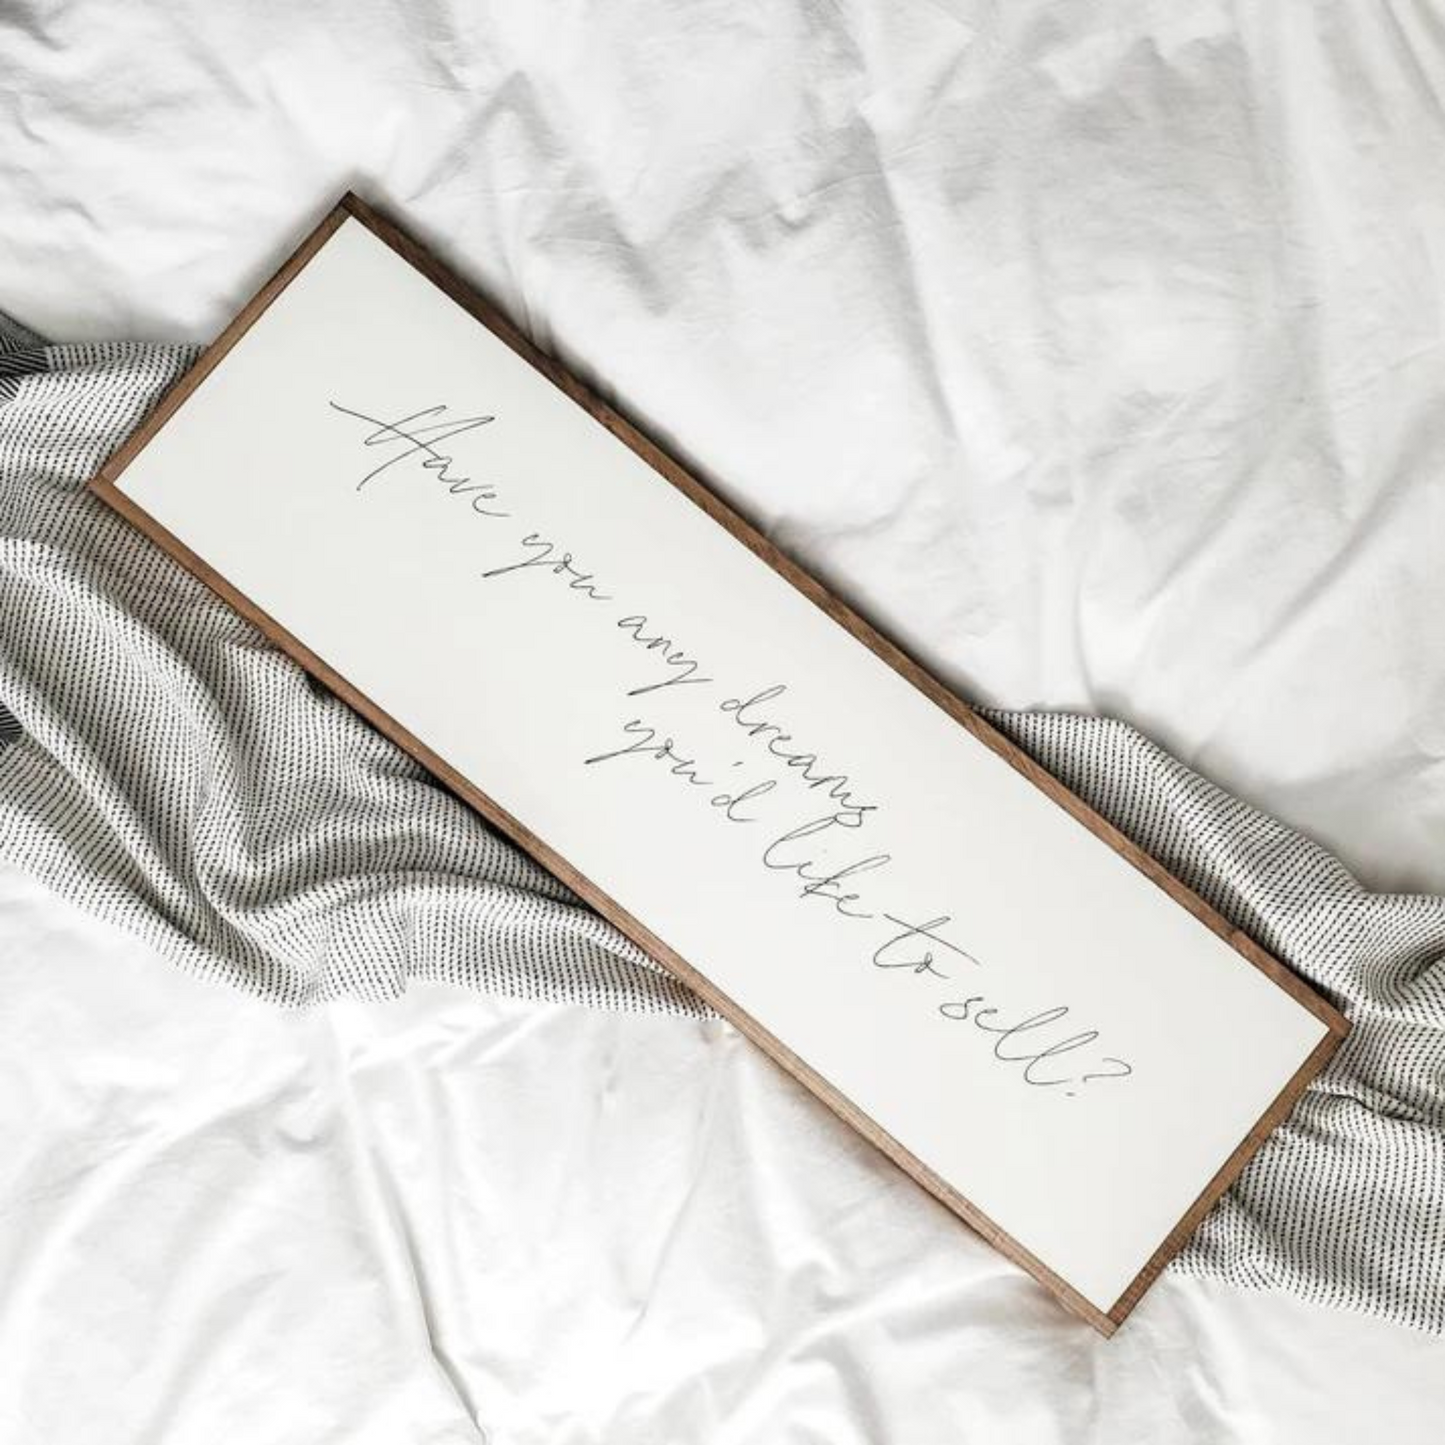 Have you any dreams
you'd like to sell?